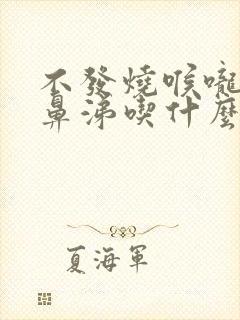 不發燒喉嚨
鼻涕喫什麼
夏海軍